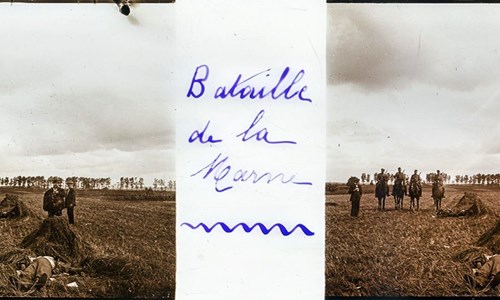 Bataille
de la
Marne